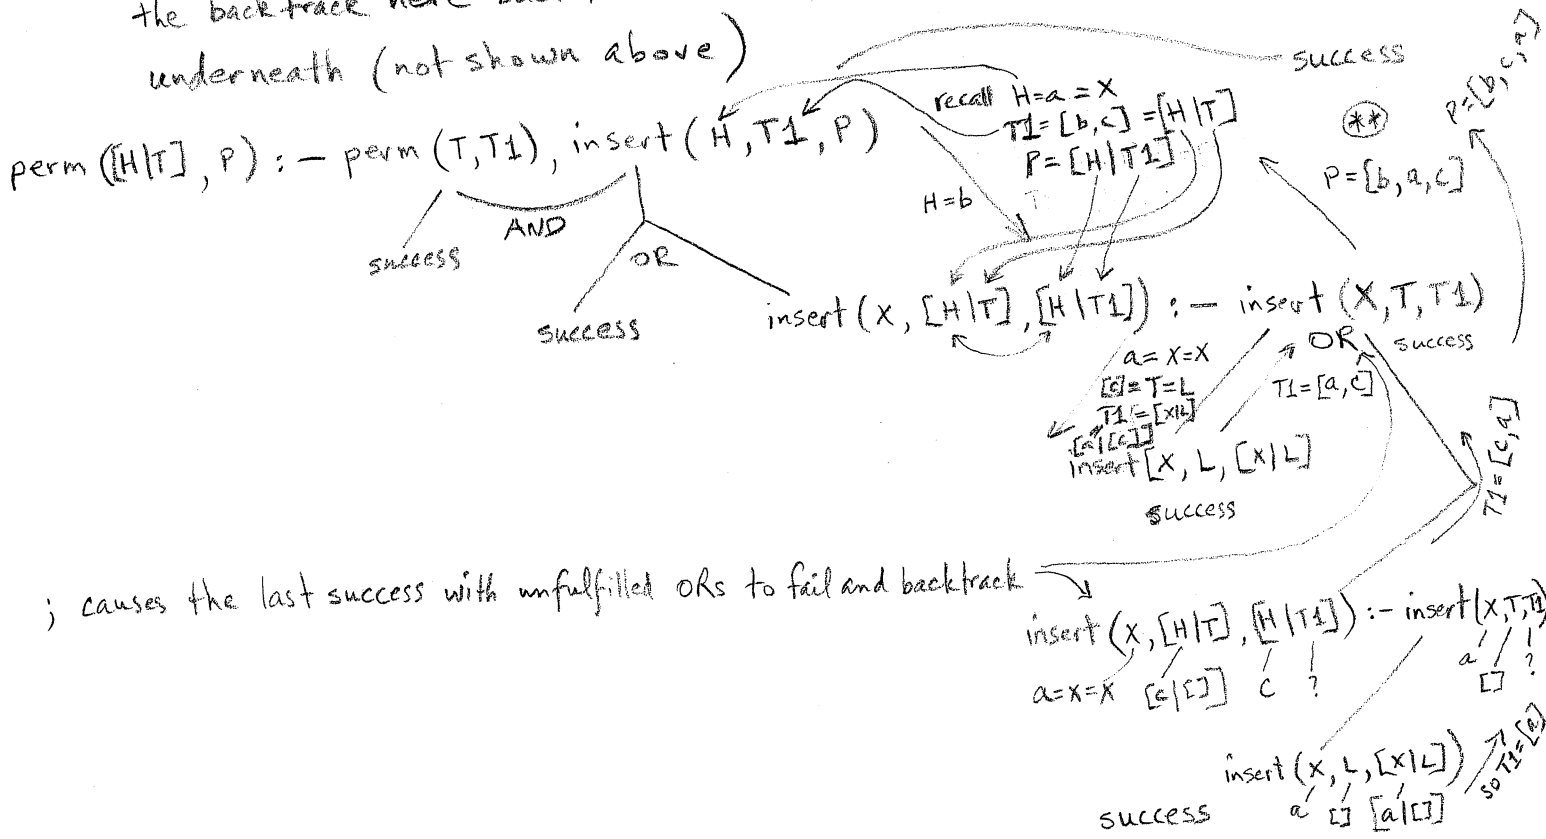 the backtrack here
underneath (not shown above)
success
recall H=a=X
T1=[b,c]=[H|T]
P=[H|T1]
**
P=[b,a,c]
P=[b,c,a]
perm([H|T],P):- perm(T,T1), insert(H,T1,P)
H=b
AND
success
OR
success
insert(X,[H|T],[H|T1]):- insert(X,T,T1)
OR
success
a=X=X
[c]=T=L
T1=[X|L]
[a|[c]]
T1=[a,c]
insert[X,L,[X|L]
success
T1=[c,a]
; causes the last success with unfulfilled ORs to fail and backtrack
insert(X,[H|T],[H|T1]):- insert(X,T,T1)
a=X=X [c|[]] C ?
a [] ?
insert(X,L,[X|L])
a [] [a|[]]
so T1=[a]
success